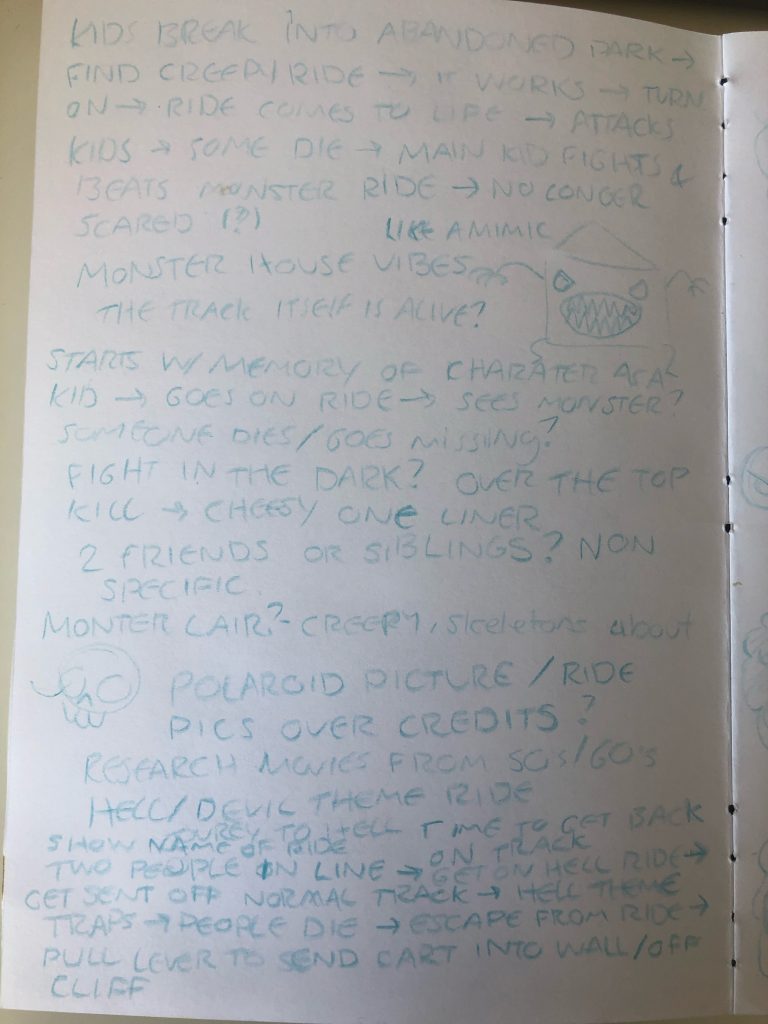 KIDS BREAK INTO ABANDONED PARK →
FIND CREEPY RIDE → IT WORKS → TURN
ON → RIDE COMES TO LIFE → ATTACKS
KIDS → SOME DIE → MAIN KID FIGHTS &
BEATS MONSTER RIDE → NO LONGER
SCARED (?)
LIKE A MIMIC
MONSTER HOUSE VIBES
THE TRACK ITSELF IS ALIVE?
STARTS W/ MEMORY OF CHARATER AS A
KID → GOES ON RIDE → SEES MONSTER?
SOMEONE DIES/GOES MISSING?
FIGHT IN THE DARK? OVER THE TOP
KILL → CHEESY ONE LINER
2 FRIENDS OR SIBLINGS? NON
SPECIFIC
MONTER LAIR? - CREEPY, skeletons about
POLAROID PICTURE / RIDE
PICS OVER CREDITS?
RESEARCH MOVIES FROM 50s/60's
HELL/DEVIL THEME RIDE
TO HELL TIME TO GET BACK
ON TRACK
SHOW NAME OF RIDE
TWO PEOPLE IN LINE → GET ON HELL RIDE →
GET SENT OFF NORMAL TRACK → HELL THEME
TRAPS → PEOPLE DIE → ESCAPE FROM RIDE →
PULL LEVER TO SEND CART INTO WALL/OFF
CLIFF